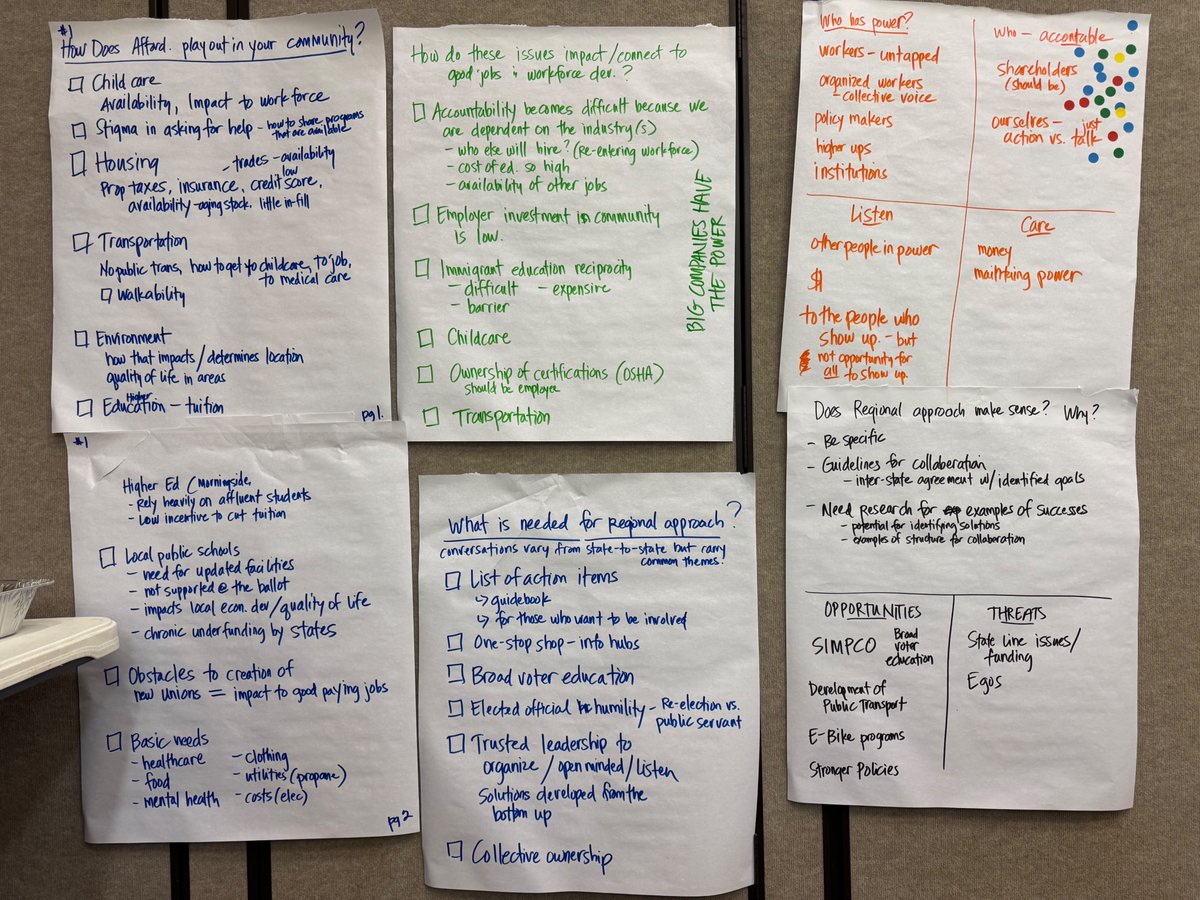 #1
How Does Afford. play out in your community?
Child care
Availability, Impact to workforce
Stigma in asking for help - how to share programs
that are available
Housing
- trades - availability
low
Prop taxes, insurance, credit score,
availability - aging stock, little in-fill
Transportation
No public trans, how to get to childcare, to job,
to medical care
Walkability
Environment
how that impacts/determines location
quality of life in areas
Higher
Education - tuition
pg 1.
#1
Higher Ed (Morningside,
- Rely heavily on affluent students
- Low incentive to cut tuition
Local public schools
- need for updated facilities
- not supported @ the ballot
- impacts local econ. dev/quality of life
- chronic underfunding by states
Obstacles to creation of
new unions = impact to good paying jobs
Basic needs
- healthcare
- food
- mental health
- clothing
- utilities (propane)
- costs (elec)
pg 2
How do these issues impact/connect to
good jobs & workforce dev.?
Accountability becomes difficult because we
are dependent on the industry(s)
- who else will hire? (Re-entering workforce)
- cost of ed. so high
- availability of other jobs
Employer investment in community
is low.
Immigrant education reciprocity
- difficult - expensive
- barrier
Childcare
Ownership of certifications (OSHA)
should be employee
Transportation
BIG COMPANIES HAVE
THE POWER
What is needed for Regional approach?
conversations vary from state-to-state but carry
common themes!
List of action items
↳ guidebook
↳ for those who want to be involved
One-stop shop - info hubs
Broad voter education
Elected official humility - Re-election vs.
public servant
Trusted leadership to
organize/open minded/listen
Solutions developed from the
bottom up
Collective ownership
Who has power?
workers - untapped
organized workers
- collective voice
policy makers
higher ups
institutions
who - accontable
shareholders
(should be)
ourselves - just
action vs. talk
Listen
other people in power
$
to the people who
show up. - but
not opportunity for
all to show up.
Care
money
maintiing power
Does Regional approach make sense? Why?
- Be specific
- Guidelines for collaboration
- inter-state agreement w/identified goals
- Need Research for examples of successes
- potential for identifying solutions
- examples of structure for collaboration
OPPORTUNITIES
SIMPCO
Broad
voter
education
Development of
Public Transport
E-Bike programs
Stronger Policies
THREATS
State Line issues/
funding
Egos